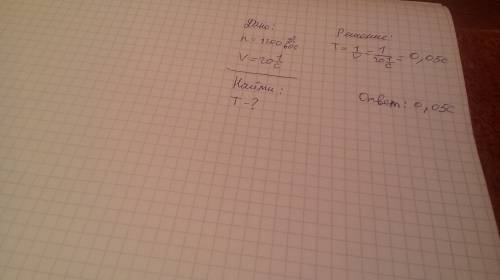 Дано:
n = 1200 об/60с
V = 20 1/с
Найти:
T - ?
Решение:
T = 1/V = 1/20 1/с = 0,05с
Ответ: 0,05с